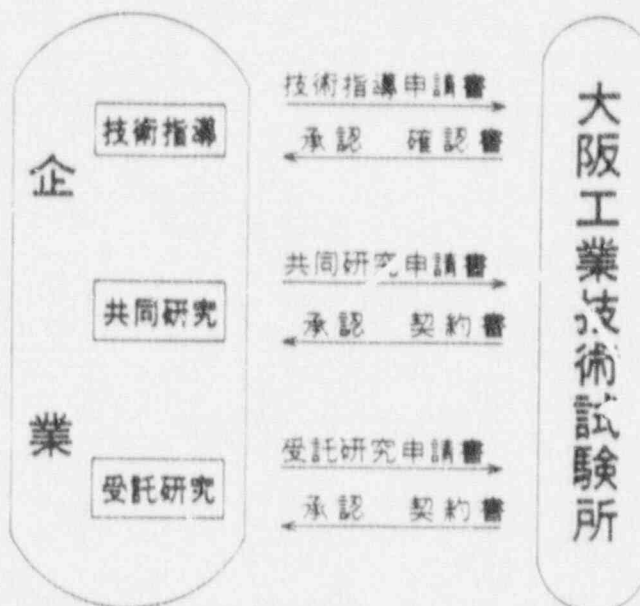 企業
技術指導
共同研究
受託研究
技術指導申請書
承認 確認書
共同研究申請書
承認 契約書
受託研究申請書
承認 契約書
大阪工業技術試験所